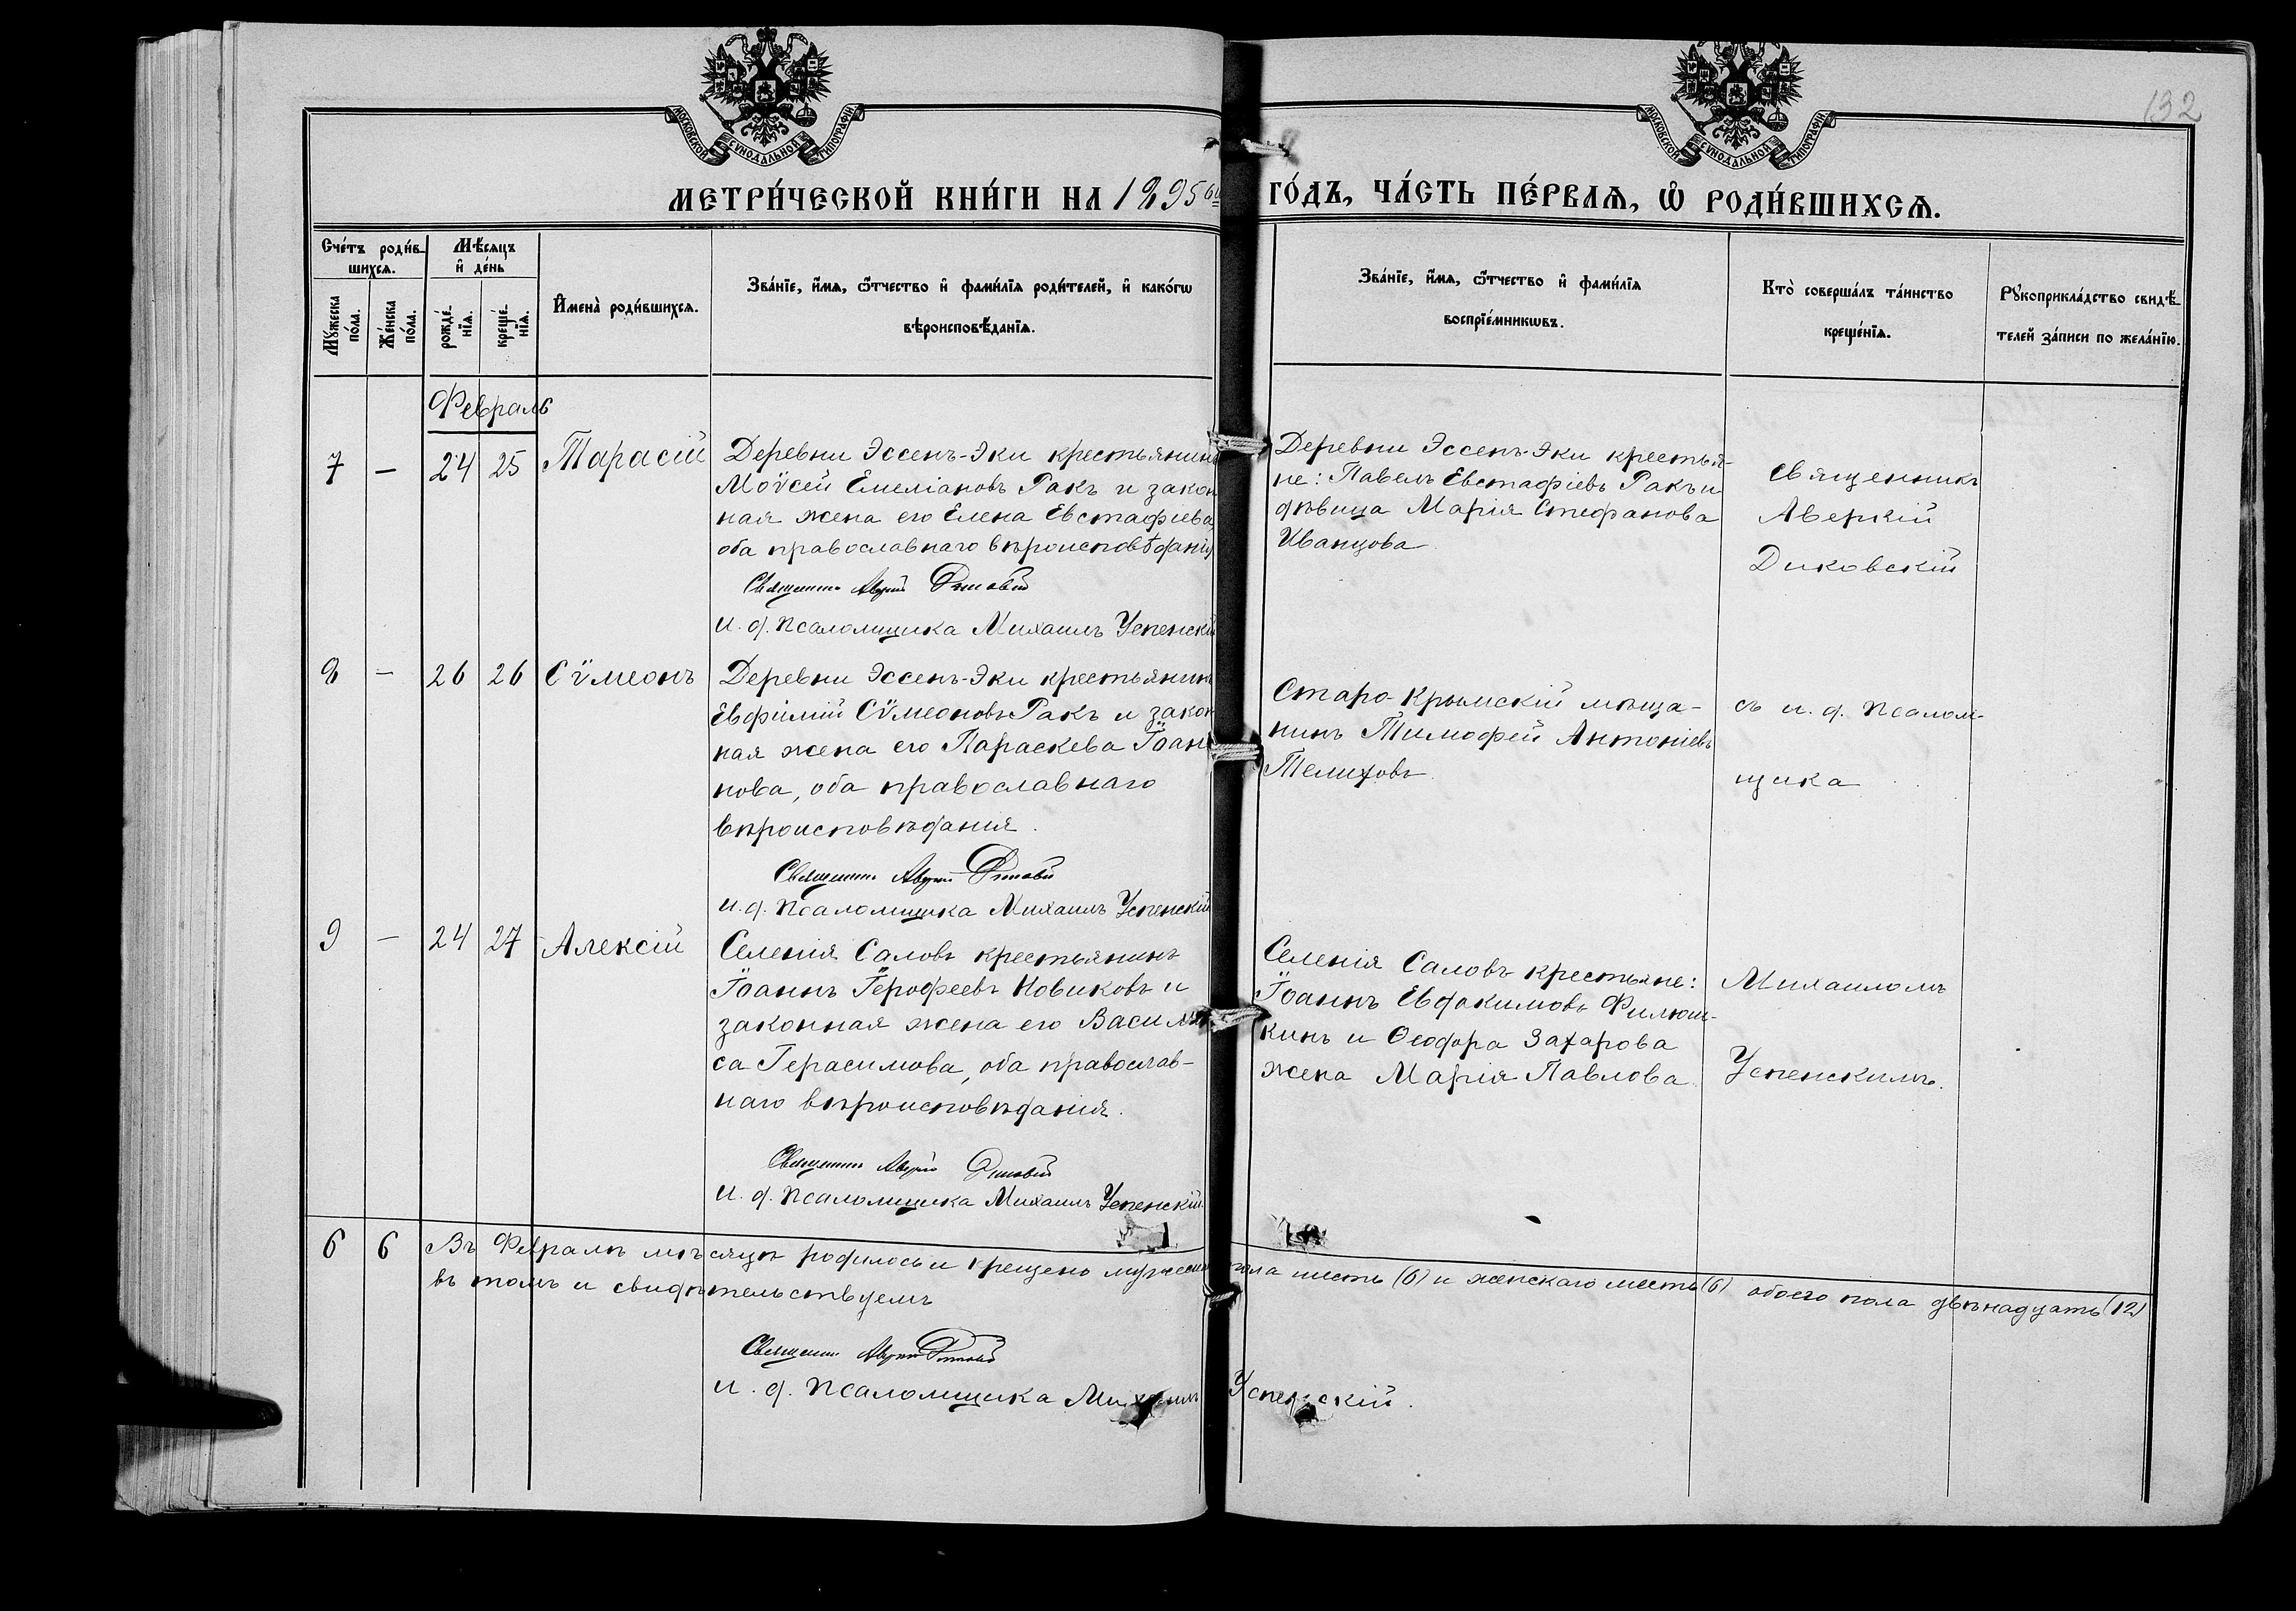 132
МОСКОВСКОЙ СѴНОДАЛЬНОЙ ТИПОГРАФІИ
МОСКОВСКОЙ СѴНОДАЛЬНОЙ ТИПОГРАФІИ
МЕТРИ́ЧЕСКОЙ КНИ́ГИ НА 1895 ГО́ДЪ, ЧА́СТЬ ПЕ́РВАѦ, Ѡ҆ РОДИ́ВШИХСѦ.
Сче́тъ роди́в-
шихсѧ.
Мꙋ́жеска
по́ла.
Же́нска
по́ла.
Мѣ́сѧцъ
и҆ де́нь
рожде́-
нїѧ.
креще́-
нїѧ.
И҆мена̀ роди́вшихсѧ.
Зва́нїе, и҆́мѧ, ѻ҆́тчество и҆ фами́лїѧ роди́телей, и҆ како́гѡ
вѣроисповѣ́данїѧ.
Зва́нїе, и҆́мѧ, ѻ҆́тчество и҆ фами́лїѧ
воспрїе́мникѡвъ.
Кто̀ соверша́лъ та́инство
креще́нїѧ.
Рꙋкоприкла́дство свидѣ́-
телей за́писи по жела́нїю.
Февраль
7 — 24 25 Тарасій
Деревни Эссенъ-Эки крестьянинъ
Моѵсей Емеліановъ Ракъ и закон
ная жена его Елена Евстафіева,
оба православнаго вѣроисповѣданія
Священникъ Аверкій Диковскій
И. д. псаломщика Михаилъ Успенскій
Деревни Эссенъ-Эки крестья-
не: Павелъ Евстафіевъ Ракъ и
дѣвица Марія Стефанова
Иванцова
Священникъ
Аверкій
Диковскій
8 — 26 26 Сѵмеонъ
Деревни Эссенъ-Эки крестьянинъ
Евфимій Сѵмеоновъ Ракъ и закон
ная жена его Параскева Іоан
нова, оба православнаго
вѣроисповѣданія.
Священникъ Аверкій Диковскій
И. д. псаломщика Михаилъ Успенскій
Старо-Крымскій мѣща-
нинъ Тимофей Антоніевъ
Телиховъ
съ и. д. псалом-
щика
9 — 24 27 Алексій
Селенія Саловъ крестьянинъ
Іоаннъ Іерофеевъ Новиковъ и
законная жена его Васили
са Герасимова, оба православ-
наго вѣроисповѣданія.
Священникъ Аверкій Диковскій
И. д. псаломщика Михаилъ Успенскій
Селенія Саловъ крестьяне:
Іоаннъ Евдокимовъ Филюш-
кинъ и Ѳеодора Захарова
жена Марія Павлова.
Михаиломъ
Успенскимъ.
6 6 Въ Февралѣ мѣсяцѣ родилось и крещено мужеска пола шесть (6) и женскаго шесть (6) обоего пола двѣнадцать (12)
въ томъ и свидѣтельствуемъ
Священникъ Аверкій Диковскій
И. д. псаломщика Михаилъ Успенскій.